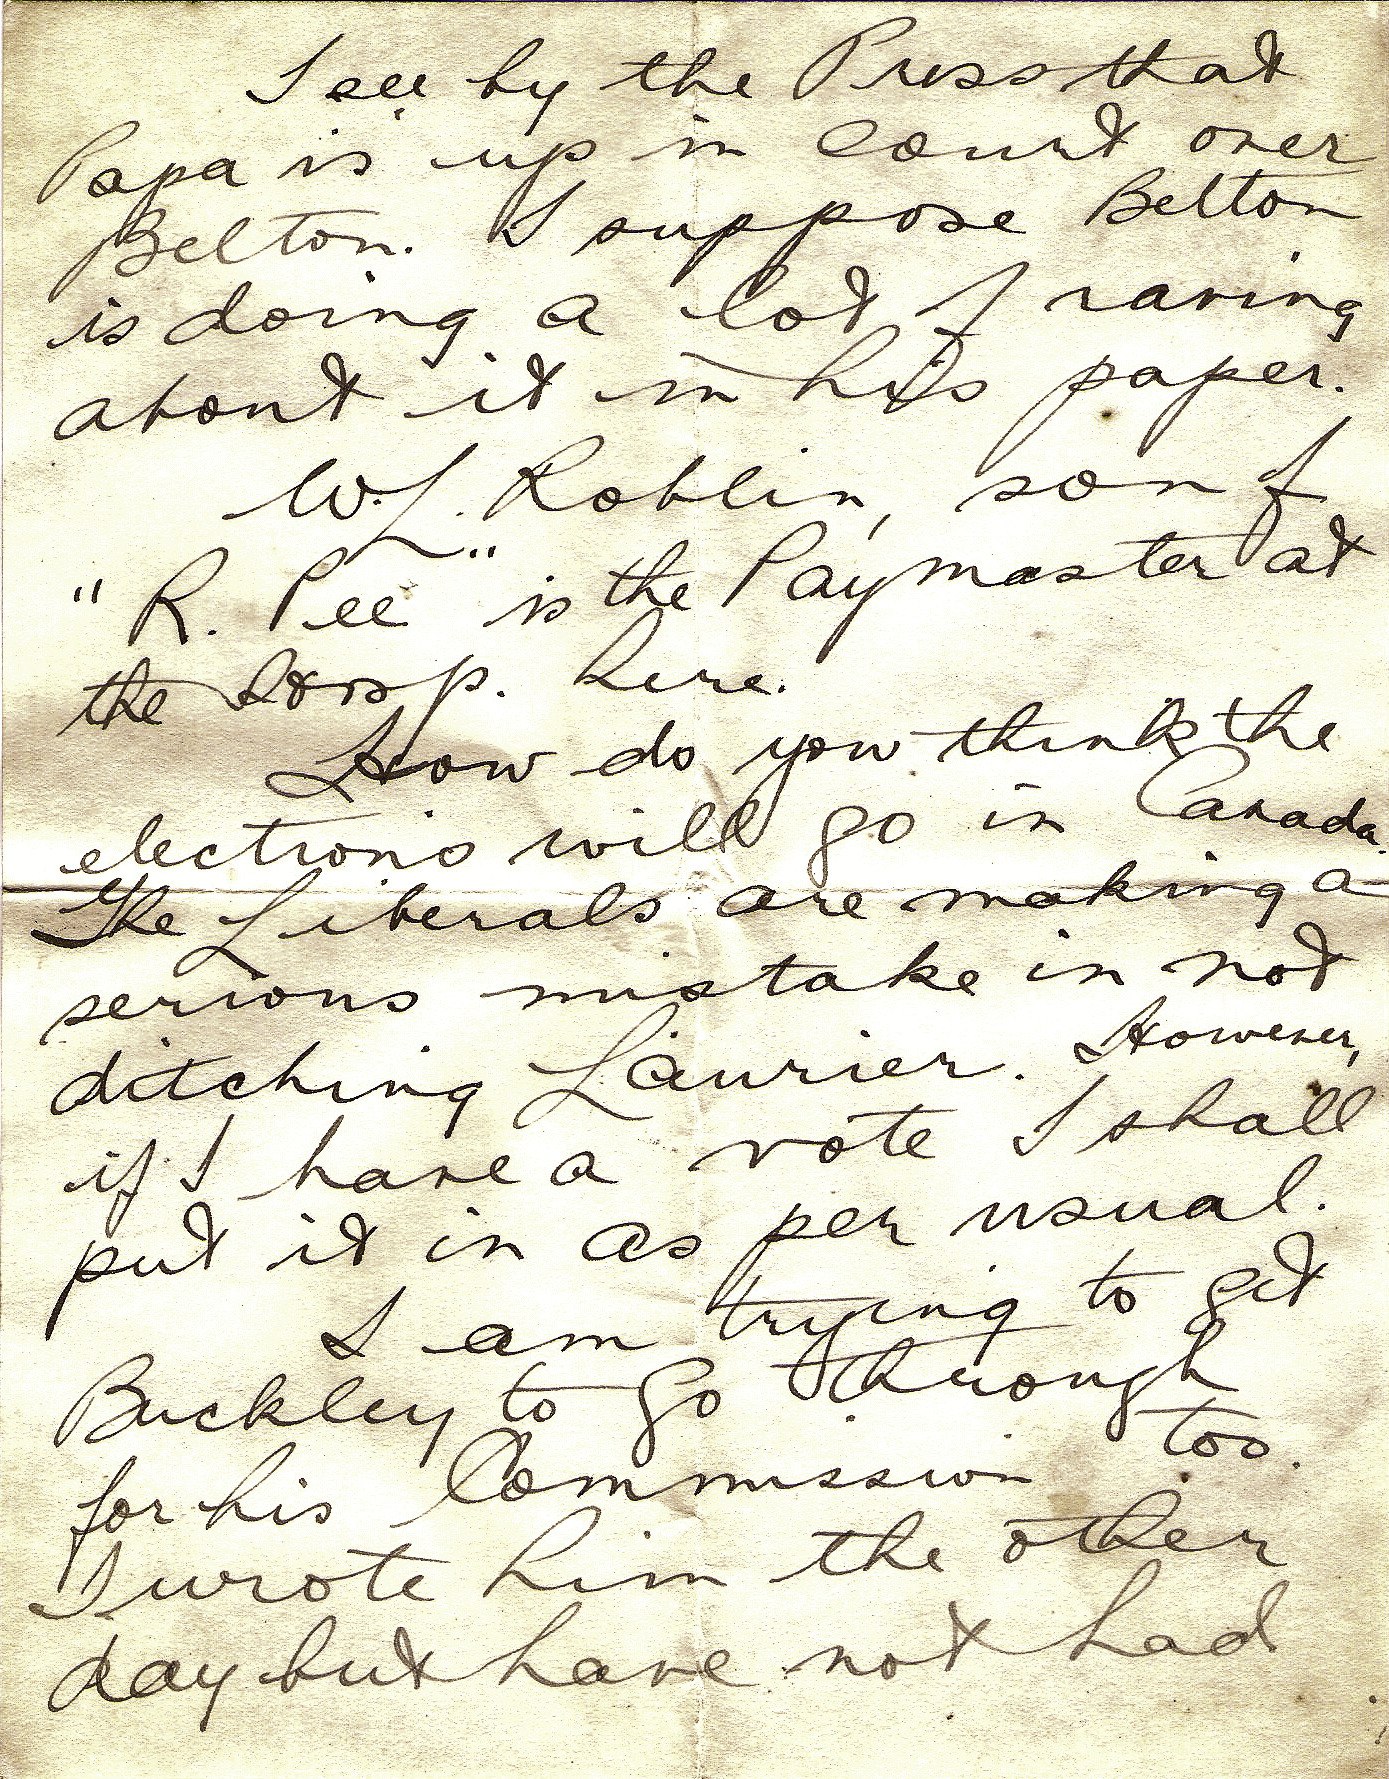 I see by the Press that
Papa is up in Court over
Belton. I suppose Belton
is doing a lot of raving
about it in his paper.
W.L. Roblin, son of
"R. Pee" is the Paymaster at
the Hosp. here.
How do you think the
elections will go in Canada.
The Liberals are making a
serious mistake in not
ditching Laurier. However,
if I have a vote I shall
put it in as per usual.
I am trying to get
Buckley to go through
for his Commission too.
I wrote him the other
day but have not had